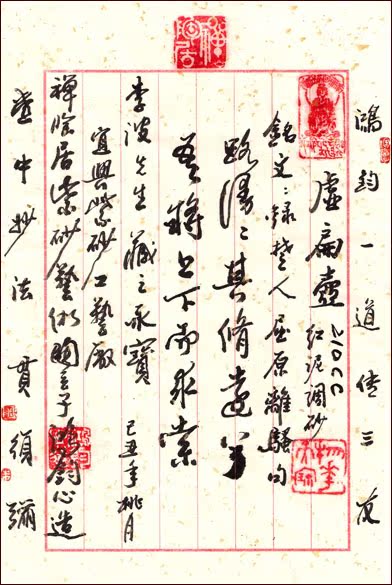 鴻鈞一道传三友
虛扁壺 紅泥調砂
銘文:錄楚人屈原離騷句
路漫〻其脩遠兮
吾將上下而求索
李波先生藏之永寶 己丑年桃月
宜興紫砂工藝廠
禅陶居紫砂藝術 鴻鈞心造
壺中妙法貫須彌
禪陶居